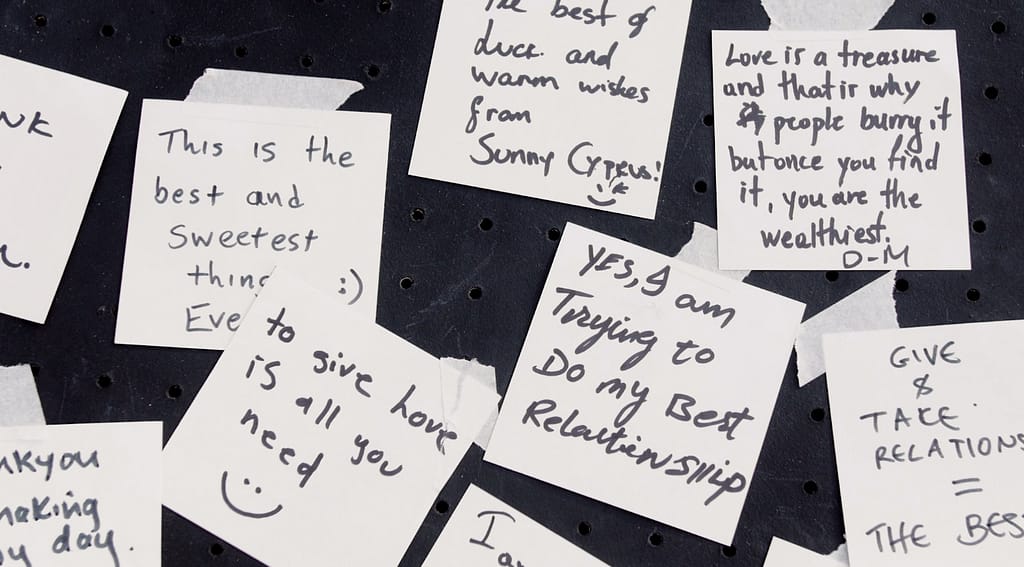 NK
This is the
best and
sweetest
thing :)
Eve
The best of
luck and
warm wishes
from
Sunny Cyprus!
Love is a treasure
and that is why
people burry it
but once you find
it, you are the
wealthiest.
D-M
to give love
is all you
need
YES, I am
Trying to
Do my Best
RelationSHip
GIVE
&
TAKE
RELATIONS
=
THE BES
nkyou
making
my day.
I